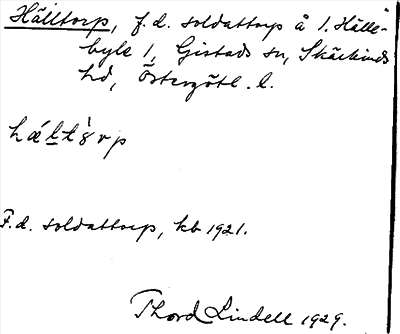 Hälltorp, f.d. soldattorp å 1. Hälle-
byle 1, Gistads sn, Skärkinds
hd, Östergötl. l.
hǽltò̱rp
F.d. soldattorp, kb 1921.
Thord Lindell 1929.